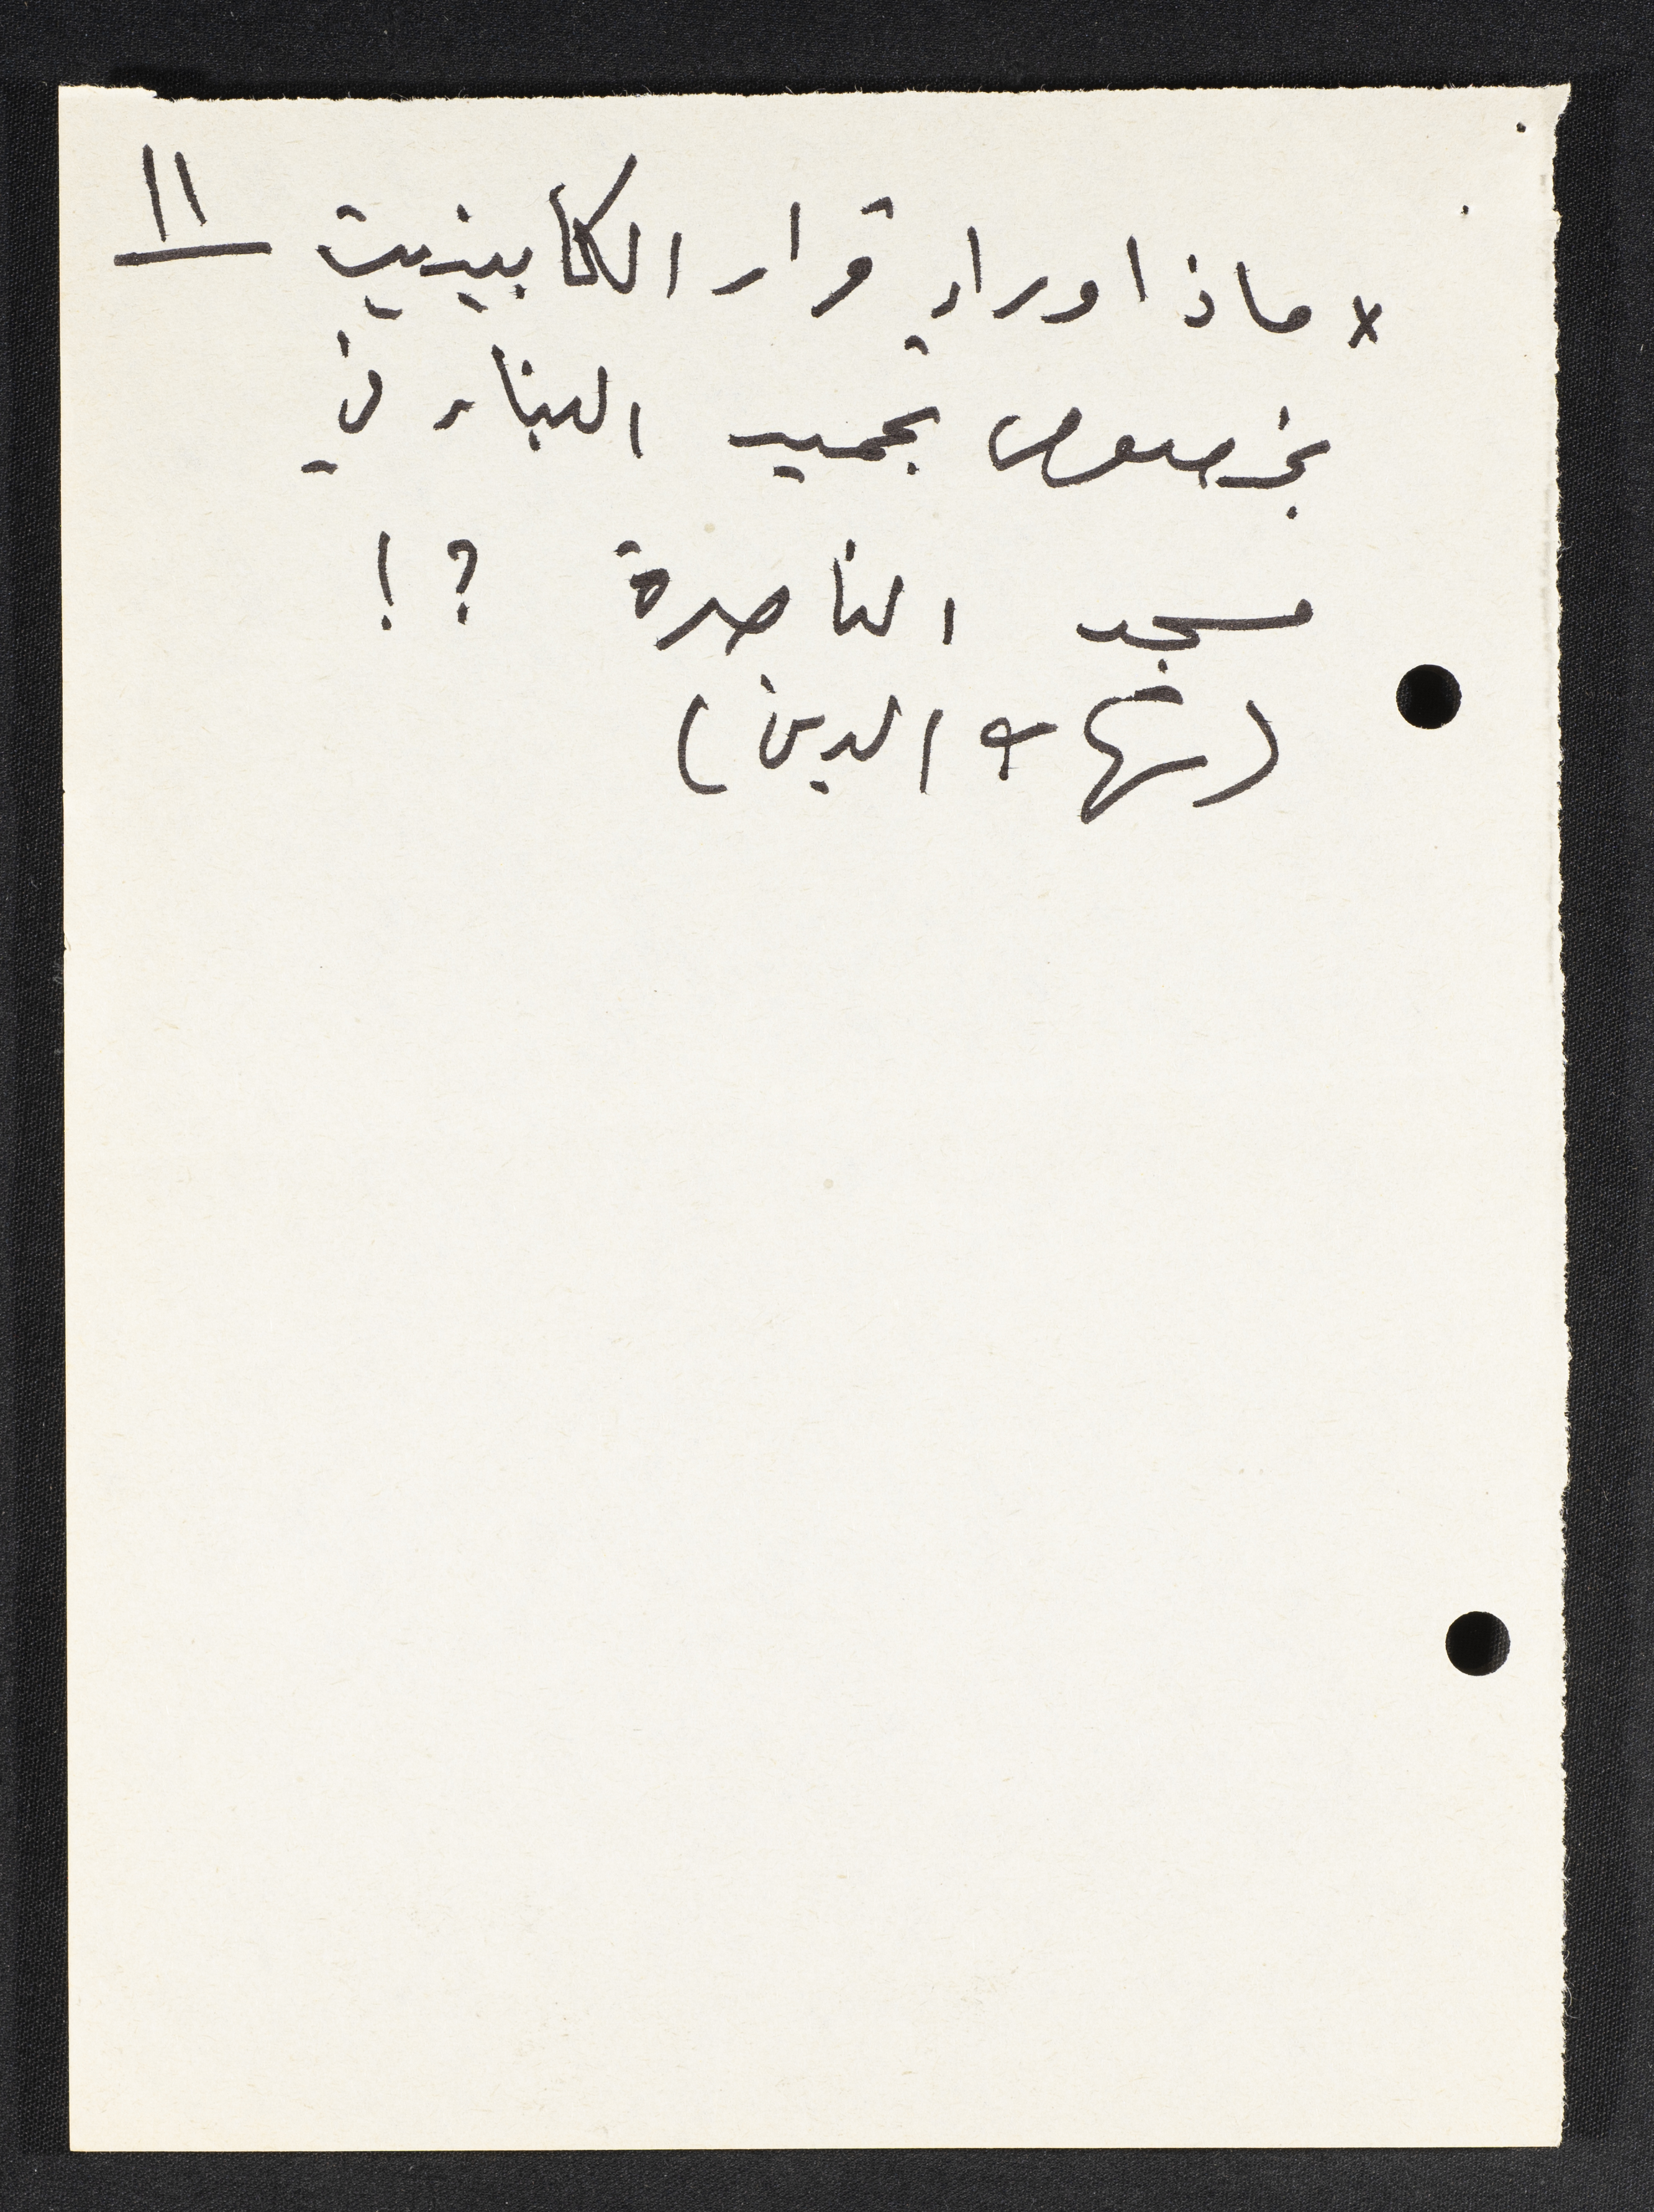 * ماذا وراء قرار الكابينيت 11
بخصوص تجميد البناء في
مسجد الناصرة ?!
(شهاب الدين)